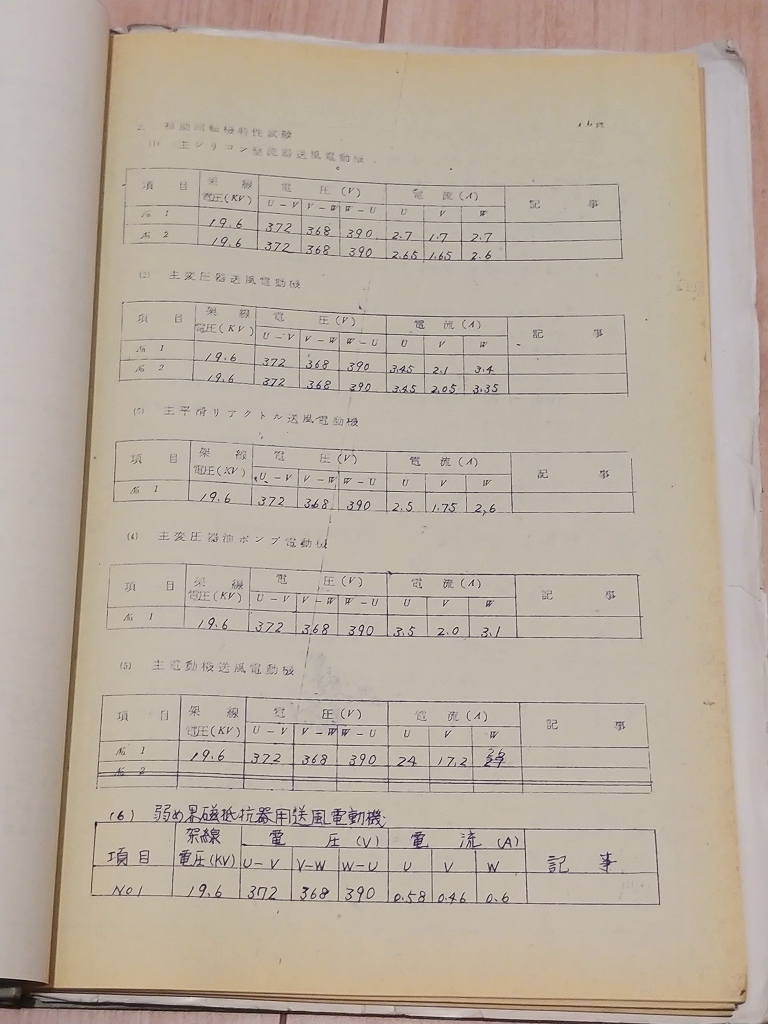 2. 補助回転機特性試験
(1) 主シリコン整流器送風電動機
項目 架線電圧(KV) 電圧(V) 電流(A) 記事
U-V V-W W-U U V W
№ 1 19.6 372 368 390 2.7 1.7 2.7
№ 2 19.6 372 368 390 2.65 1.65 2.6
(2) 主変圧器送風電動機
項目 架線電圧(KV) 電圧(V) 電流(A) 記事
U-V V-W W-U U V W
№ 1 19.6 372 368 390 3.45 2.1 3.4
№ 2 19.6 372 368 390 3.45 2.05 3.35
(3) 主平滑リアクトル送風電動機
項目 架線電圧(KV) 電圧(V) 電流(A) 記事
U-V V-W W-U U V W
№ 1 19.6 372 368 390 2.5 1.75 2.6
(4) 主変圧器油ポンプ電動機
項目 架線電圧(KV) 電圧(V) 電流(A) 記事
U-V V-W W-U U V W
№ 1 19.6 372 368 390 3.5 2.0 3.1
(5) 主電動機送風電動機
項目 架線電圧(KV) 電圧(V) 電流(A) 記事
U-V V-W W-U U V W
№ 1 19.6 372 368 390 24 17.2 26
№ 2
(6) 弱め界磁抵抗器用送風電動機
項目 架線電圧(KV) 電圧(V) 電流(A) 記事
U-V V-W W-U U V W
No1 19.6 372 368 390 0.58 0.46 0.6